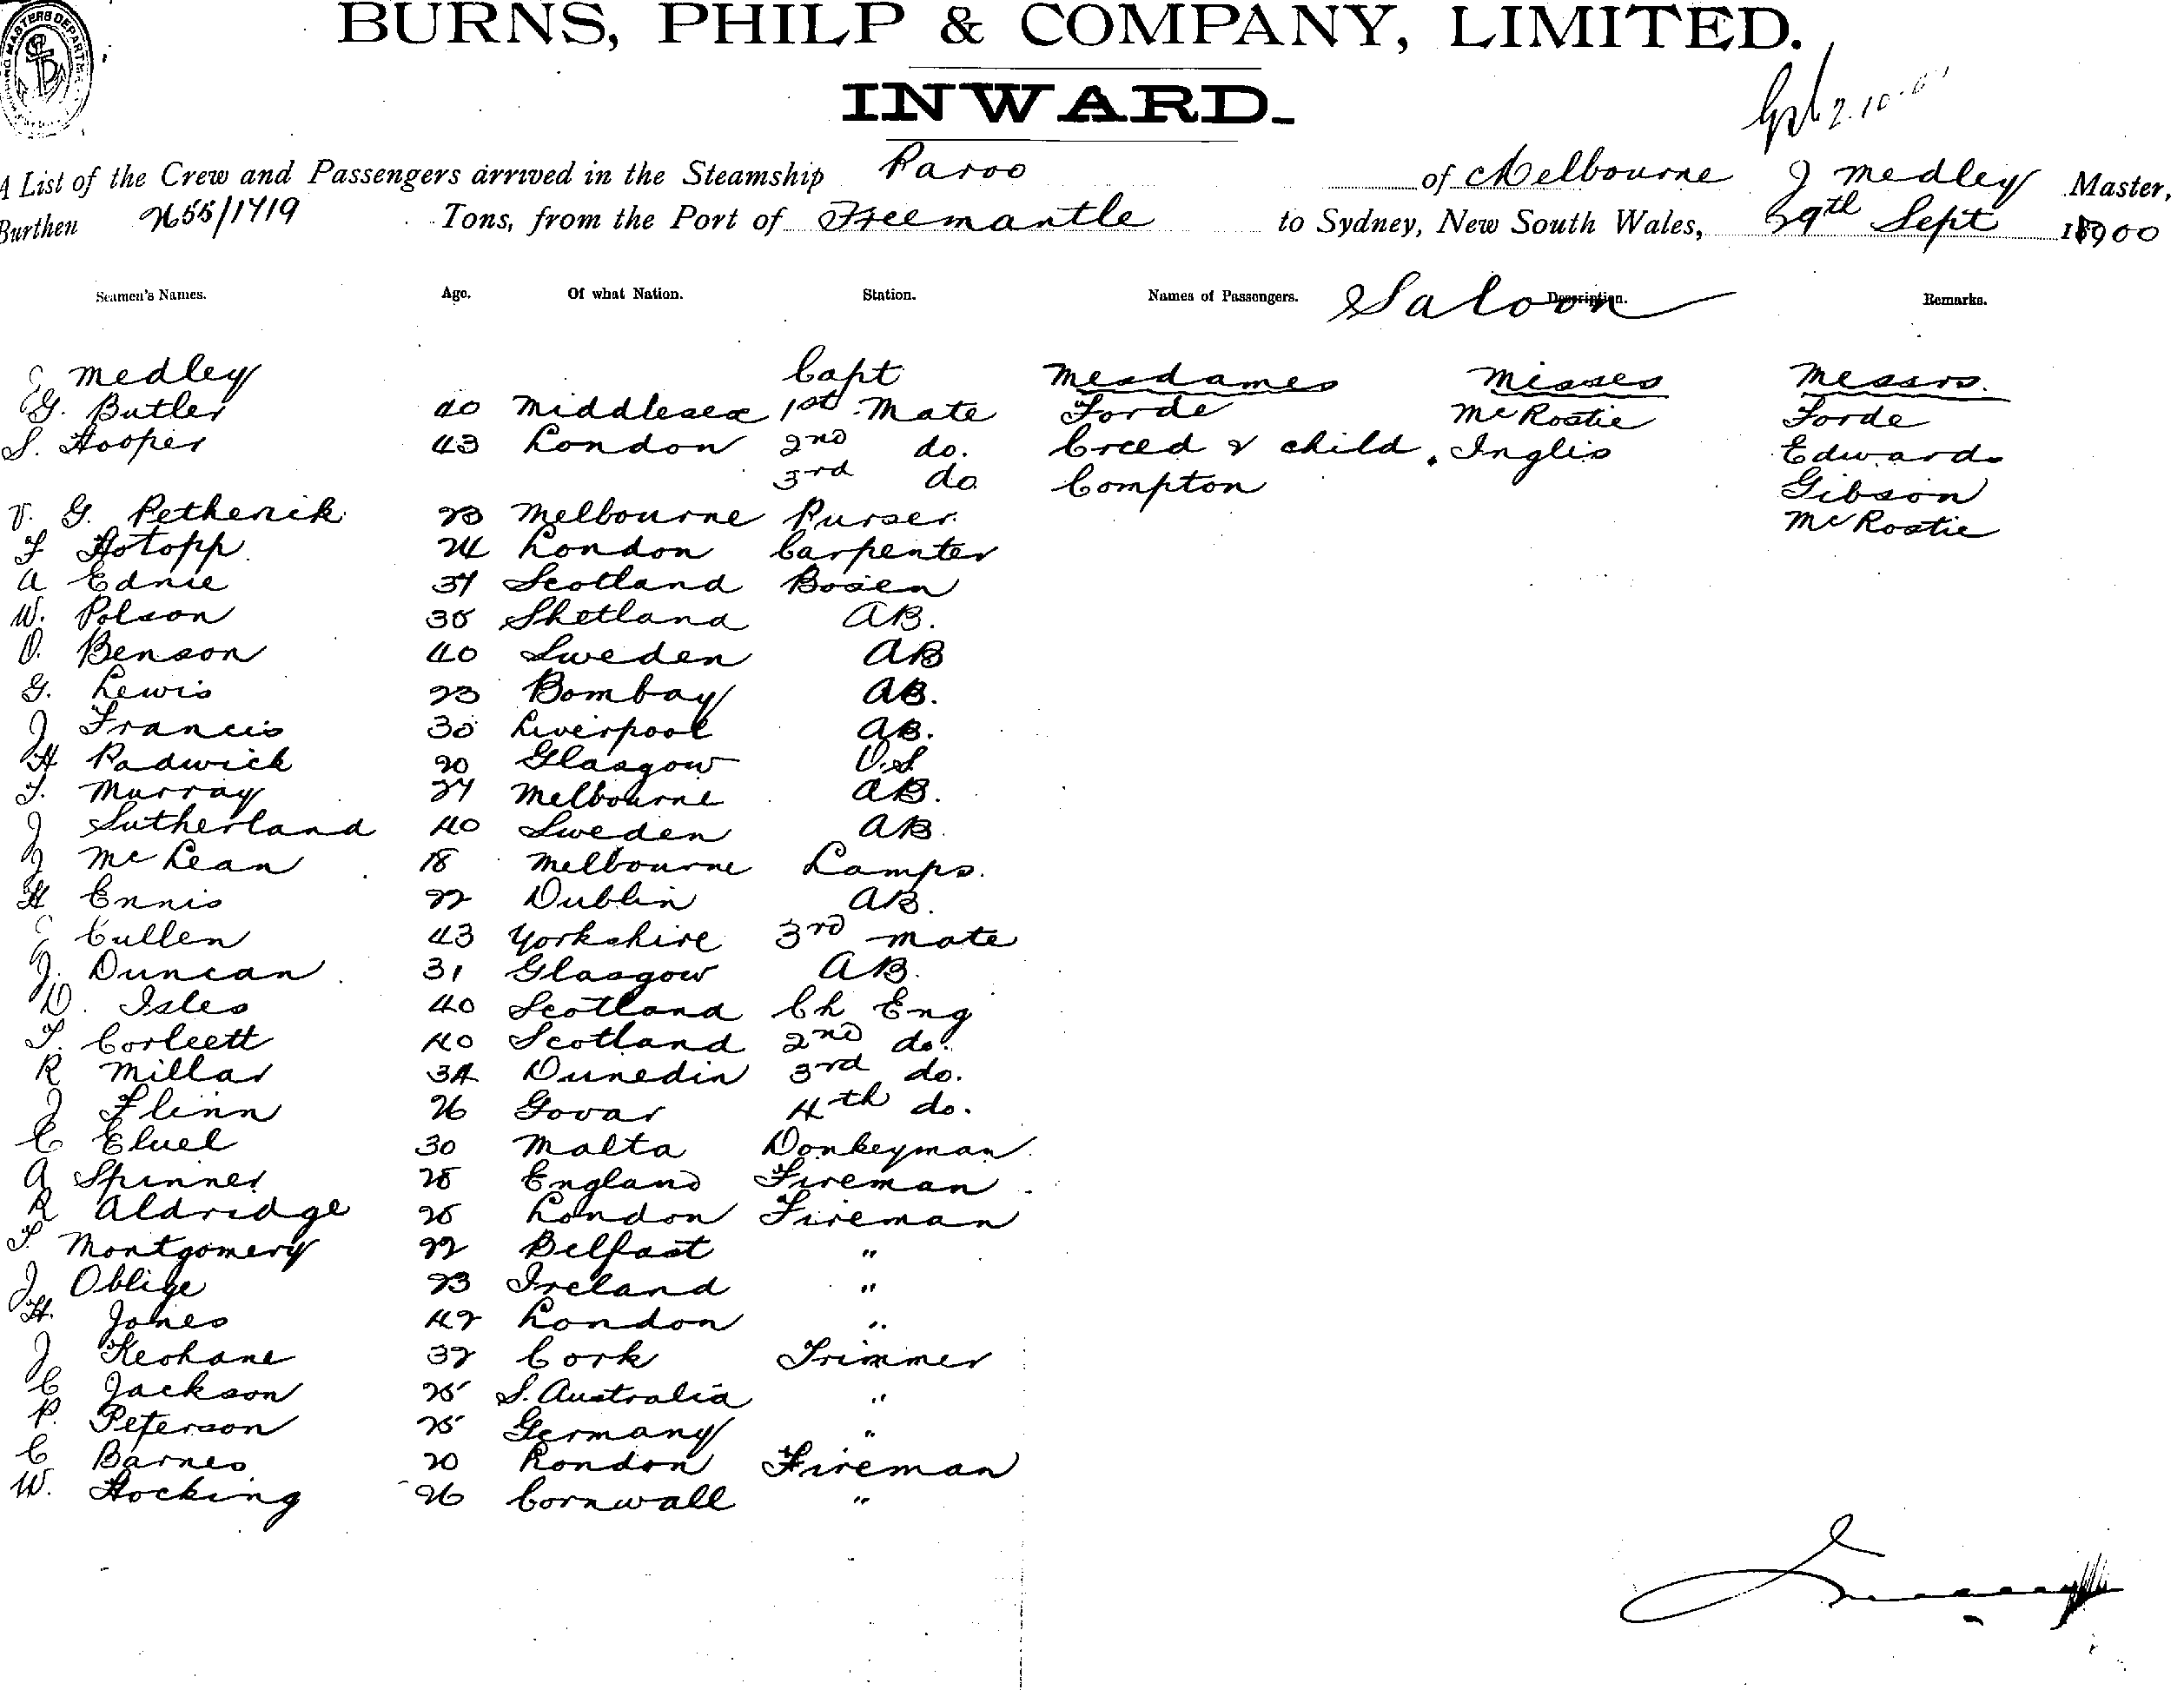 BURNS, PHILP & COMPANY, LIMITED.
INWARD.
2.10.
A List of the Crew and Passengers arrived in the Steamship Paroo of Melbourne J Medley Master,
Burthen 2655/1719 Tons, from the Port of Freemantle to Sydney, New South Wales, 29th Sept 1900
Seamen's Names. Age. Of what Nation. Station. Names of Passengers. Saloon Description. Remarks.
J Medley Capt Mesdames Misses Messrs.
G. Butler 40 Middlesex 1st Mate Forde McRostie Forde
S. Hooper 43 London 2nd do. Creed & child. Inglis Edwards
3rd do Compton Gibson
V. G. Petherick 23 Melbourne Purser McRostie
F Hotopp 24 London Carpenter
A Ednie 37 Scotland Bosen
W. Polson 35 Shetland AB.
O. Benson 40 Sweden AB
G. Lewis 23 Bombay AB.
J Francis 30 Liverpool AB.
H Padwick 20 Glasgow O.S
F. Murray 27 Melbourne AB.
J Sutherland 40 Sweden AB.
J McLean 18 Melbourne Lamps.
H Ennis 22 Dublin AB.
J Cullen 43 Yorkshire 3rd mate
J. Duncan 31 Glasgow AB.
D. Isles 40 Scotland Ch Eng
T. Corleett 40 Scotland 2nd do.
R Millar 34 Dunedin 3rd do.
J Flinn 26 Govar 4th do.
C Eluel 30 Malta Donkeyman
A Spinner 25 England Fireman
R Aldridge 25 London Fireman
F. Montgomery 22 Belfast "
J Oblige 23 Ireland "
H. Jones 42 London "
J Keohane 32 Cork Trimmer
C Jackson 25 S. Australia "
P. Peterson 25 Germany "
C Barnes 20 London Fireman
W. Hocking 26 Cornwall "